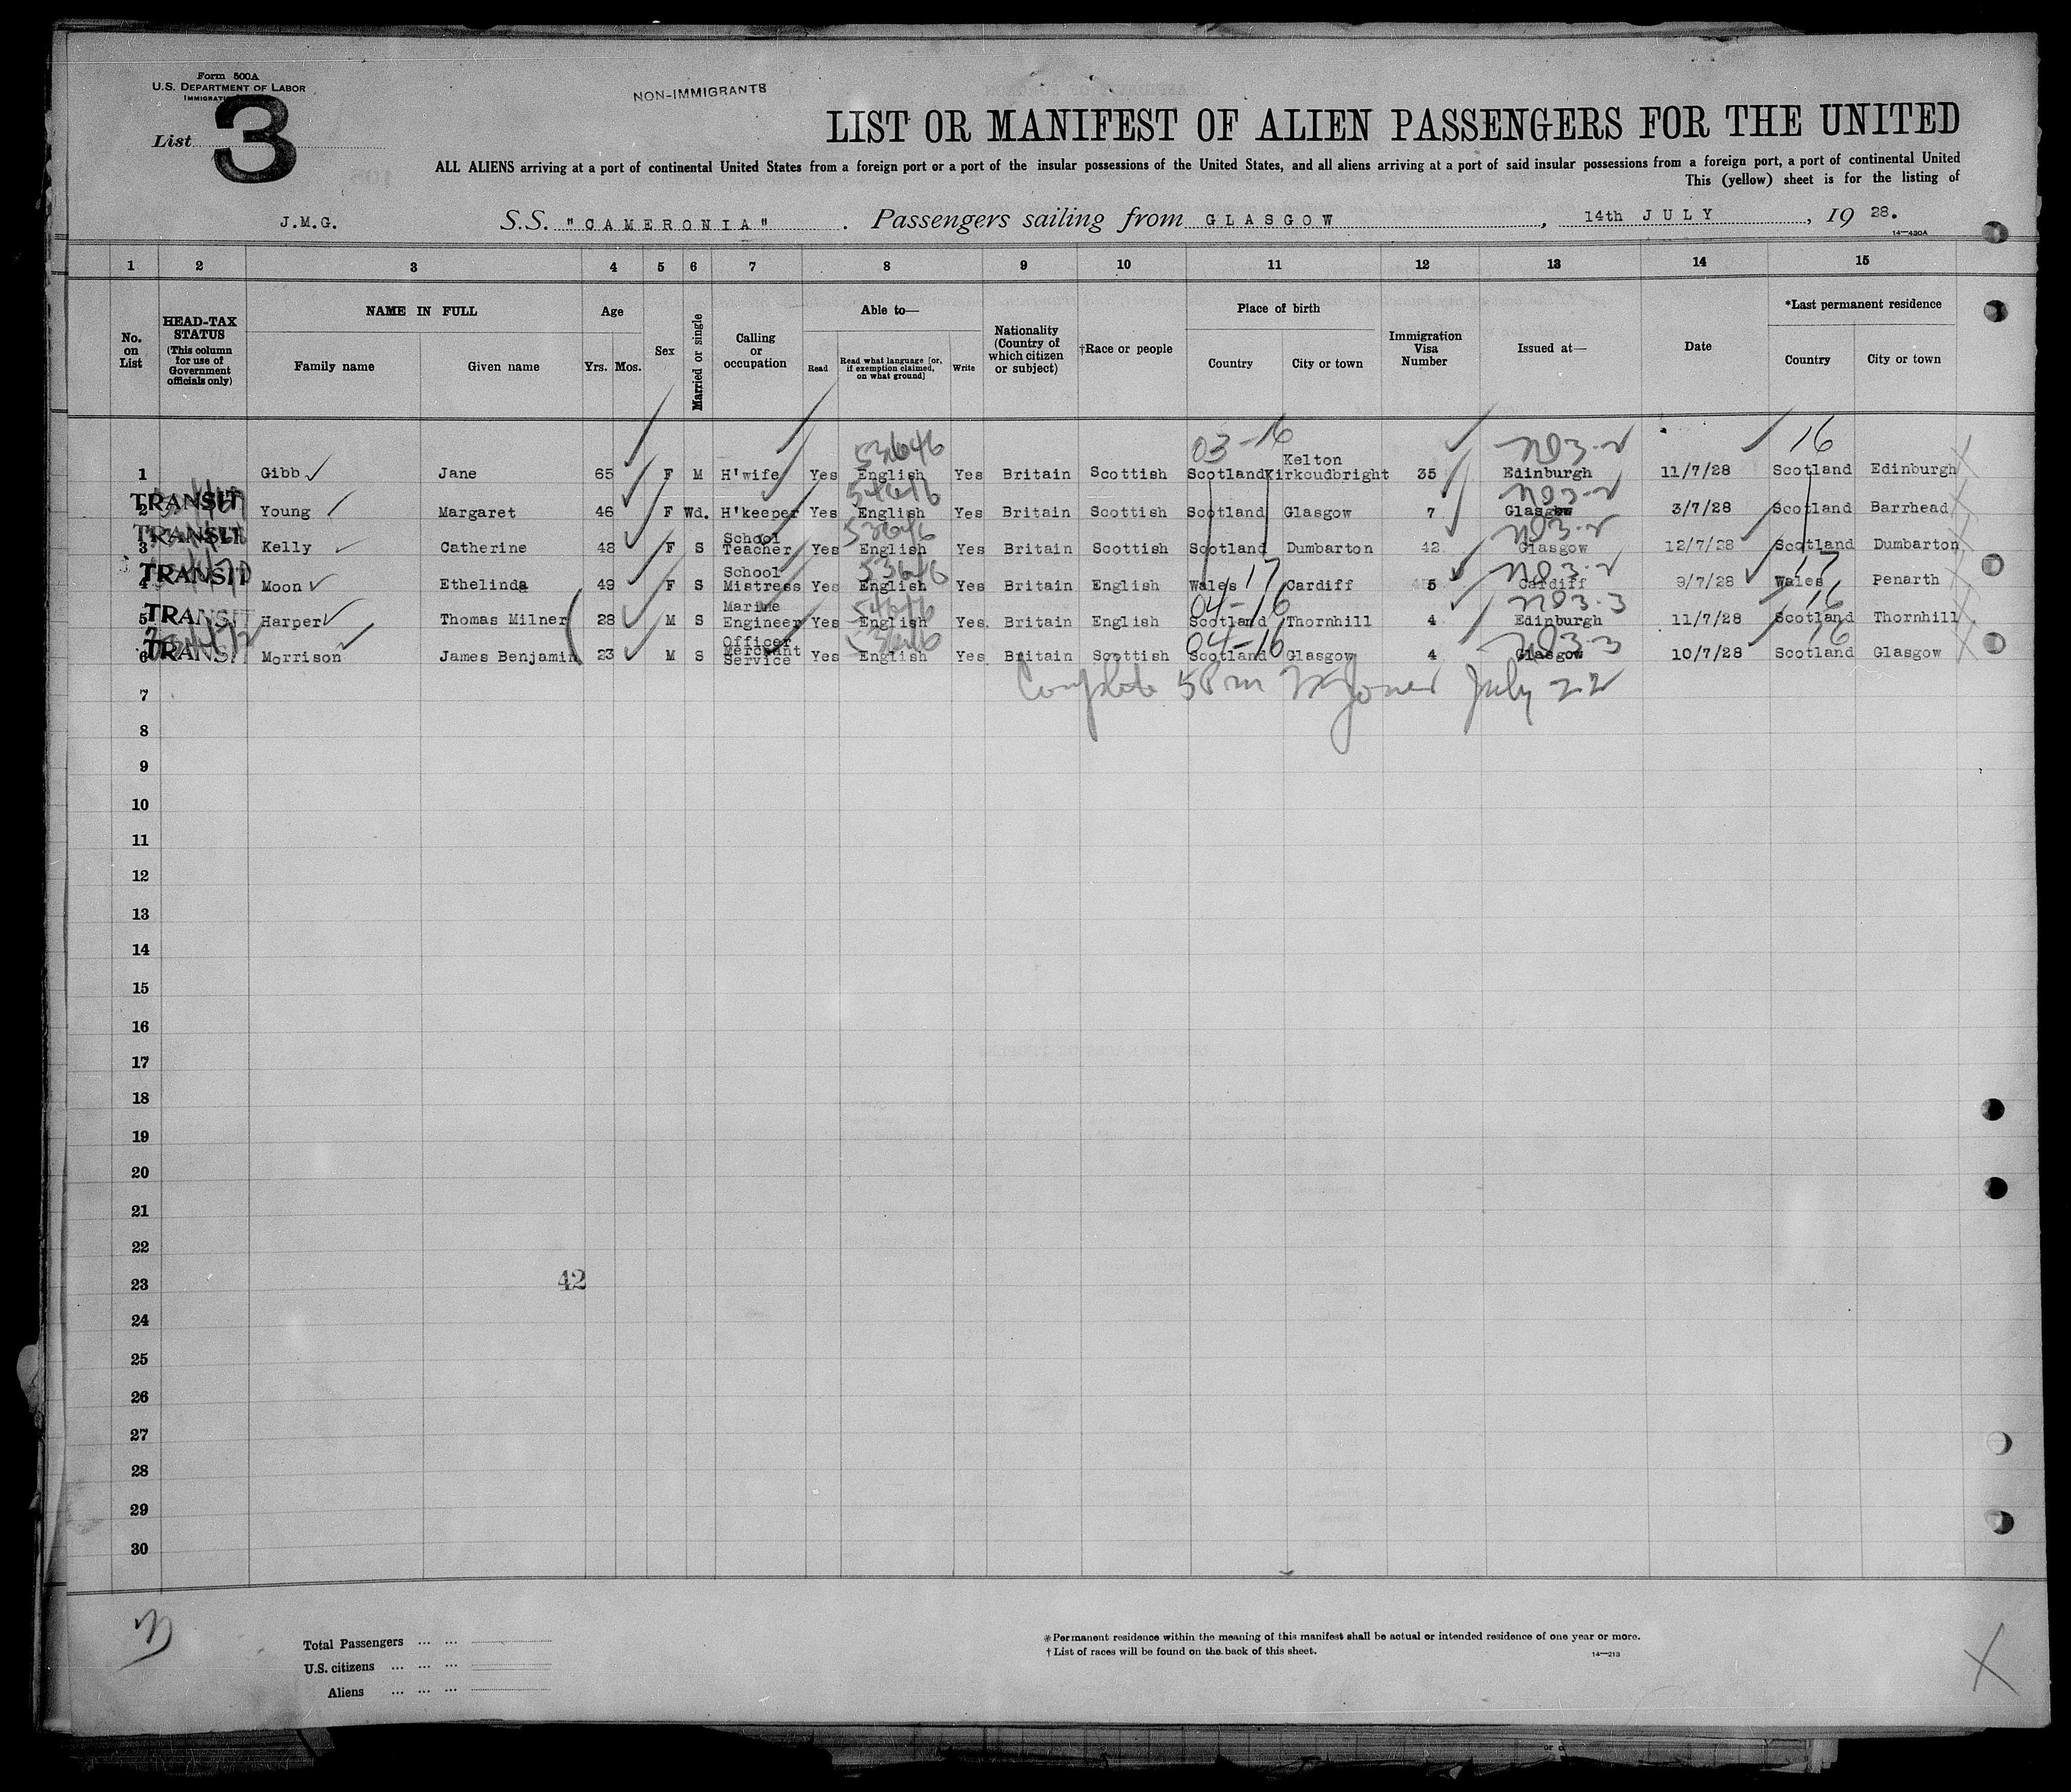 Form 500A
U.S. DEPARTMENT OF LABOR
NON-IMMIGRANTS
List 3
LIST OR MANIFEST OF ALIEN PASSENGERS FOR THE UNITED
ALL ALIENS arriving at a port of continental United States from a foreign port or a port of the insular possessions of the United States, and all aliens arriving at a port of said insular possessions from a foreign port, a port of continental United
This (yellow) sheet is for the listing of
J.M.G. S.S. "CAMERONIA". Passengers sailing from GLASGOW, 14th JULY, 19 28.
14—430A
1 2 3 4 5 6 7 8 9 10 11 12 13 14 15
No. on List
HEAD-TAX STATUS (This column for use of Government officials only)
NAME IN FULL
Family name Given name
Age
Yrs. Mos.
Sex
Married or single
Calling or occupation
Able to—
Read
Read what language [or, if exemption claimed, on what ground]
Write
Nationality (Country of which citizen or subject)
†Race or people
Place of birth
Country City or town
Immigration Visa Number
Issued at—
Date
*Last permanent residence
Country City or town
53646 03-16 N03-2 16
1 Gibb Jane 65 F M H'wife Yes English Yes Britain Scottish Scotland Kelton Kirkcudbright 35 Edinburgh 11/7/28 Scotland Edinburgh
TRANSIT 54646 N03-2
2 Young Margaret 46 F Wd. H'keeper Yes English Yes Britain Scottish Scotland Glasgow 7 Glasgow 3/7/28 Scotland Barrhead
TRANSIT 53646 N03-2
3 Kelly Catherine 48 F S School Teacher Yes English Yes Britain Scottish Scotland Dumbarton 42 Glasgow 12/7/28 Scotland Dumbarton
TRANSIT 53646 17 N03-2 17
4 Moon Ethelinda 49 F S School Mistress Yes English Yes Britain English Wales Cardiff 5 Cardiff 9/7/28 Wales Penarth
TRANSIT 54646 04-16 N03-3 16
5 Harper Thomas Milner 28 M S Marine Engineer Yes English Yes Britain English Scotland Thornhill 4 Edinburgh 11/7/28 Scotland Thornhill
TRANSIT 53646 04-16 N03-3 16
6 Morrison James Benjamin 23 M S Officer Merchant Service Yes English Yes Britain Scottish Scotland Glasgow 4 Glasgow 10/7/28 Scotland Glasgow
Complete July 22
7
8
9
10
11
12
13
14
15
16
17
18
19
20
21
22
23 42
24
25
26
27
28
29
30
Total Passengers ... ...
U.S. citizens ... ... ...
Aliens ... ... ...
*Permanent residence within the meaning of this manifest shall be actual or intended residence of one year or more.
†List of races will be found on the back of this sheet.
14—213
X